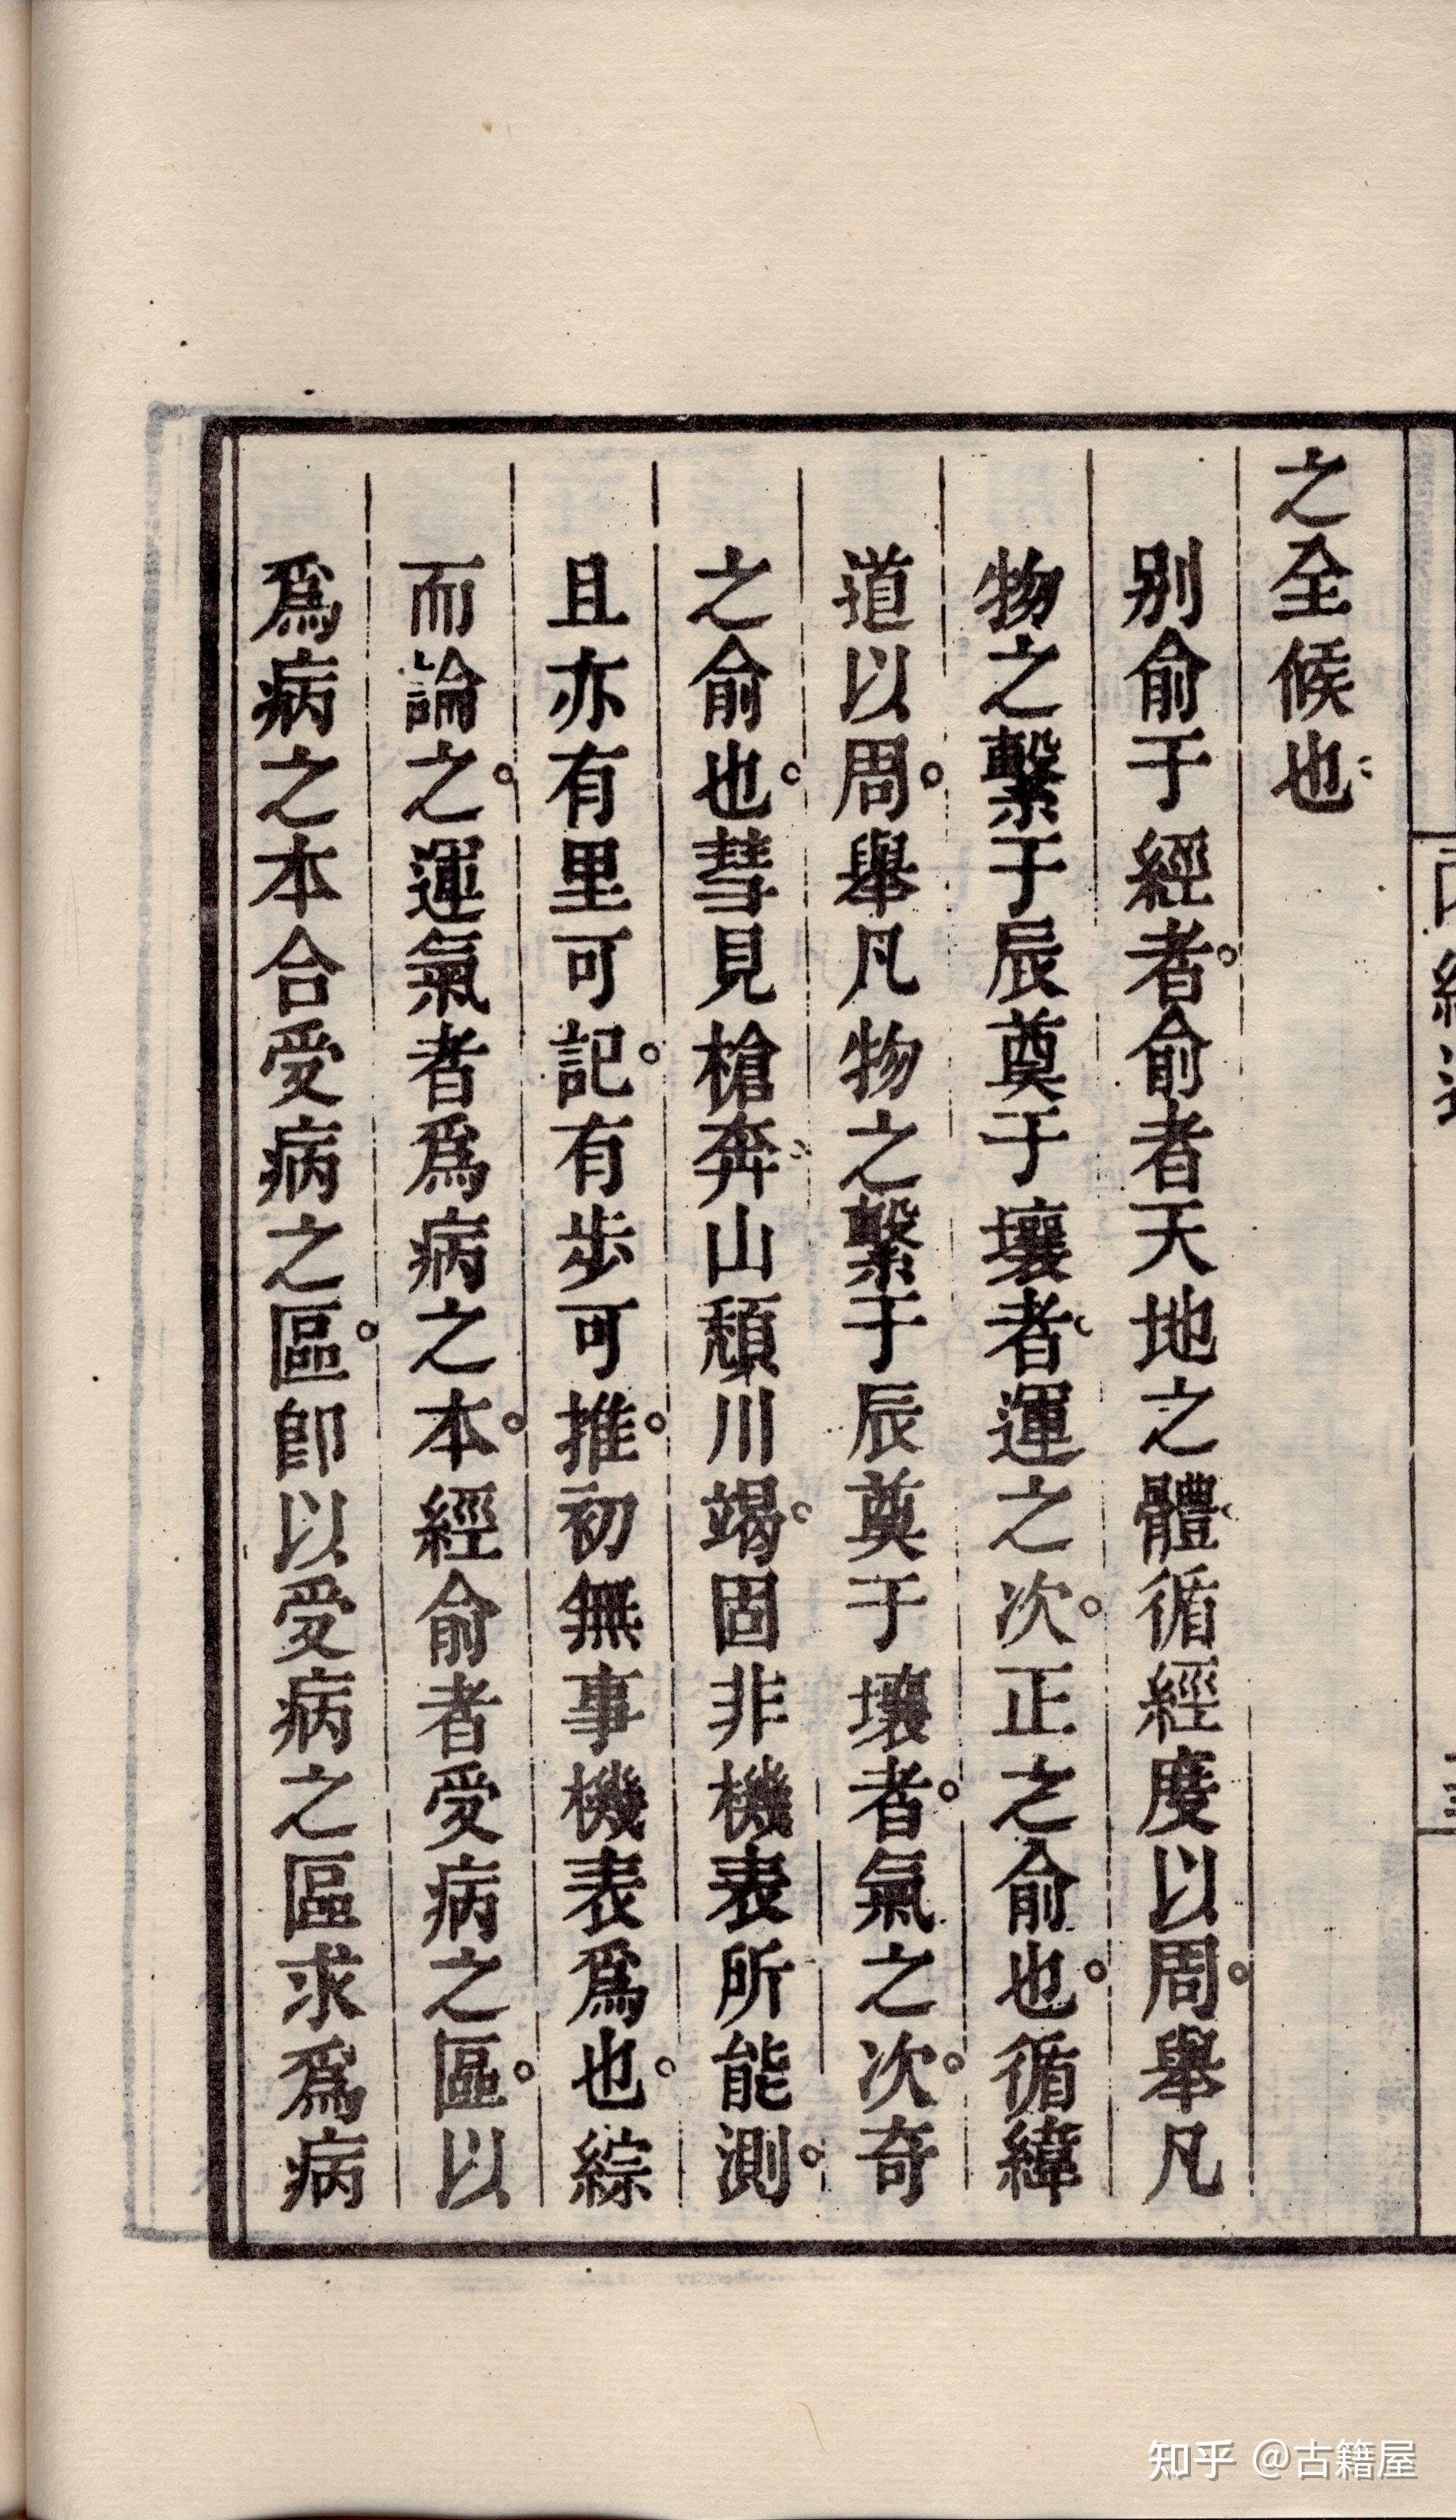 之全候也
别俞于經者俞者天地之體循經度以周舉凡
物之繫于辰奠于壤者運之次正之俞也循緯
道以周舉凡物之繫于辰奠于壤者氣之次奇
之俞也彗見槍奔山頽川竭固非機表所能測
且亦有里可記有步可推初無事機表爲也綜
而論之運氣者爲病之本經俞者受病之區以
爲病之本合受病之區卽以受病之區求爲病
知乎 @古籍屋